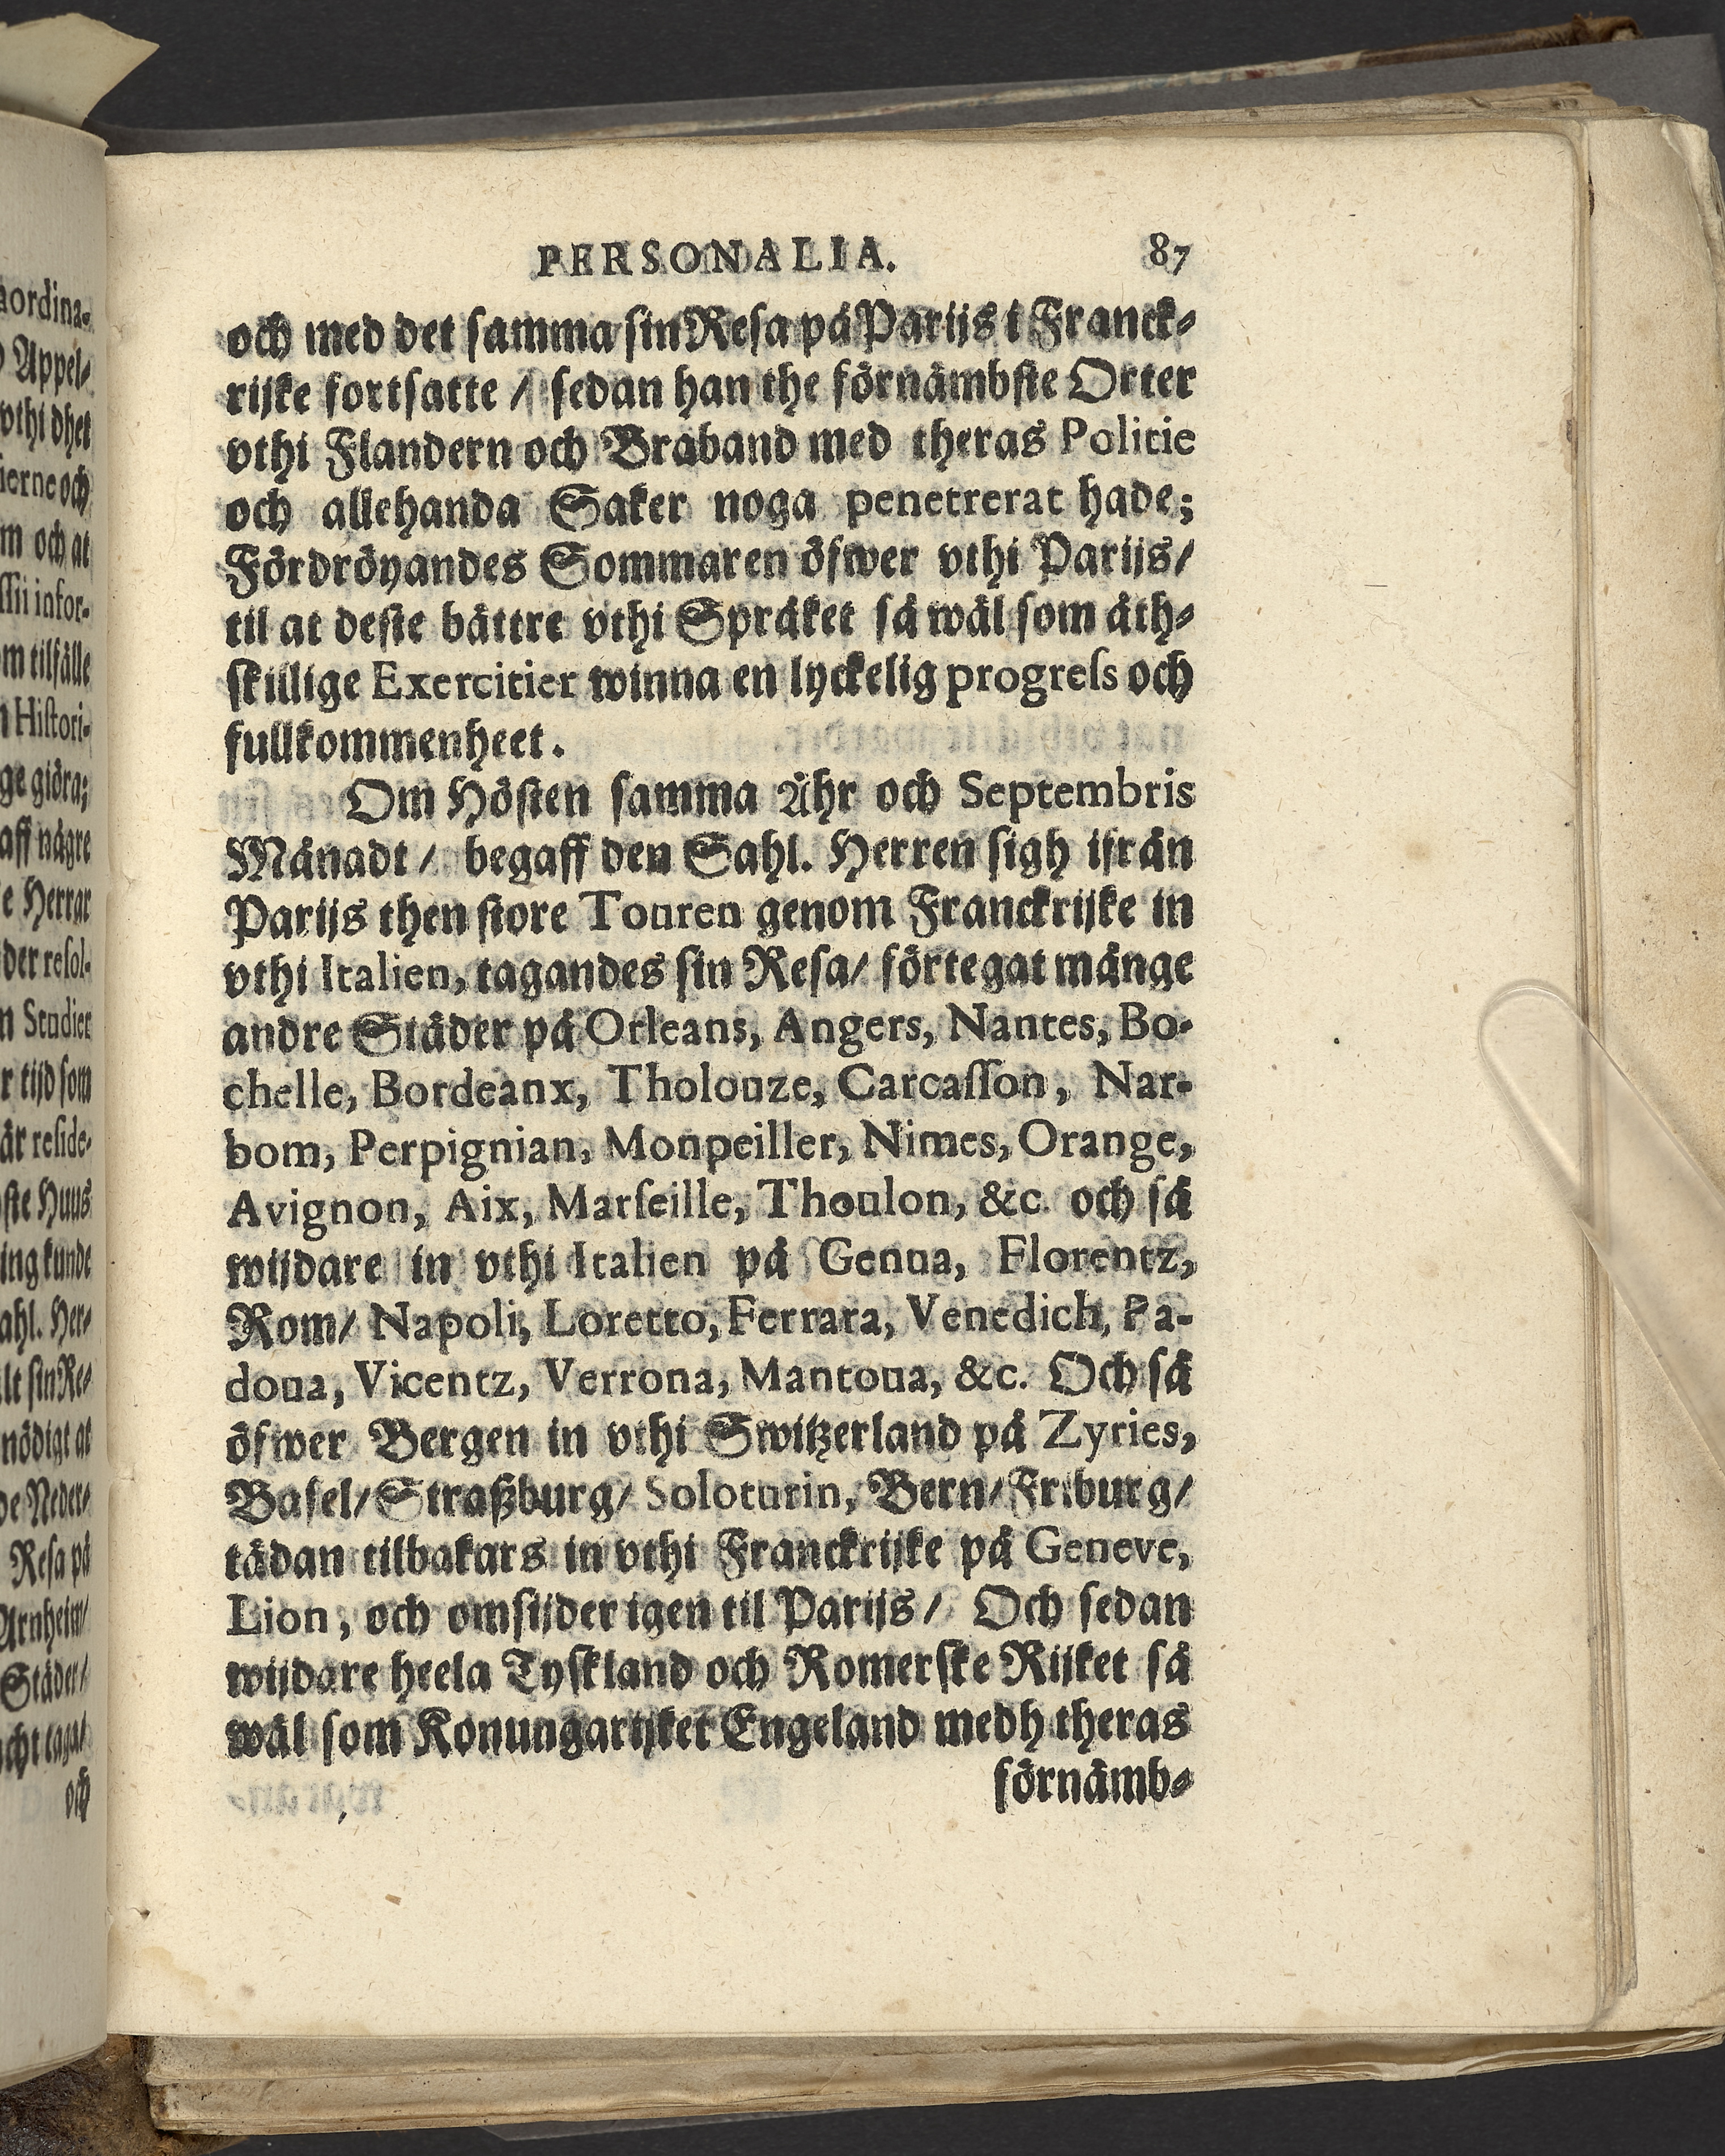 PERSONALIA. 87
och med det samma sin Resa på Parijs i Franck-
rijke fortsatte / sedan han the förnämbste Orter
vthi Flandern och Braband med theras Politie
och allehanda Saker noga penetrerat hade;
Fördröyandes Sommaren öfwer vthi Parijs/
til at deste bättre vthi Språket så wäl som åth-
skillige Exercitier winna en lyckelig progress och
fullkommenheet.
Om Hösten samma Åhr och Septembris
Månadt / begaff den Sahl. Herren sigh ifrån
Parijs then store Touren genom Franckrijke in
vthi Italien, tagandes sin Resa/ förtegat månge
andre Städer på Orleans, Angers, Nantes, Bo-
chelle, Bordeanx, Tholouze, Carcasson, Nar-
bom, Perpignian, Monpeiller, Nimes, Orange,
Avignon, Aix, Marseille, Thoulon, &c. och så
wijdare in vthi Italien på Genua, Florentz,
Rom/ Napoli, Loretto, Ferrara, Venedich, Pa-
doua, Vicentz, Verrona, Mantoua, &c. Och så
öfwer Bergen in vthi Switzerland på Zyries,
Basel/ Straßburg/ Soloturin, Bern/ Friburg/
tädan tilbakars in vthi Franckrijke på Geneve,
Lion, och omsijder igen til Parijs / Och sedan
wijdare heela Tyskland och Romerske Rijket så
wäl som Konungarijket Engeland medh theras
förnämb-
aordina-
Appel-
vthi dhet
ierne och
m och at
infor-
m tilfälle
Histori-
ge giöra;
aff någre
e Herrar
der resol-
n Studier
r tijd som
är reside-
ste Huus
ing kunde
ahl. Her-
lt sin Re-
nödigt at
de Neder-
Resa på
Arnheim/
Städer/
och